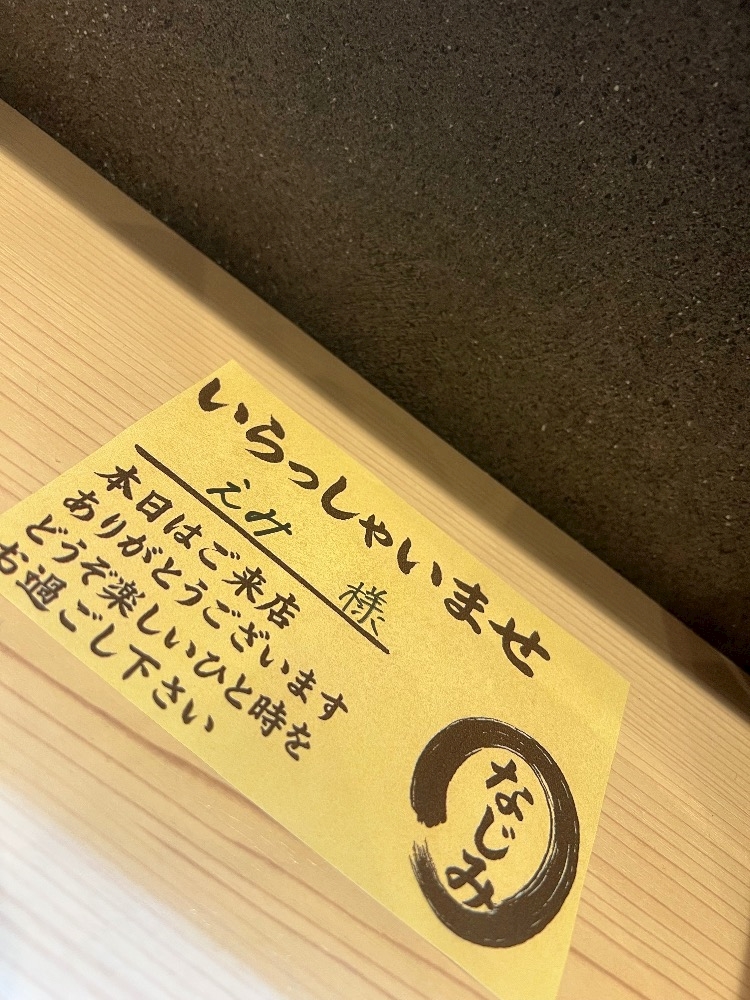 いらっしゃいませ
えみ 様
本日はご来店
ありがとうございます
どうぞ楽しいひと時を
お過ごし下さい
なじみ